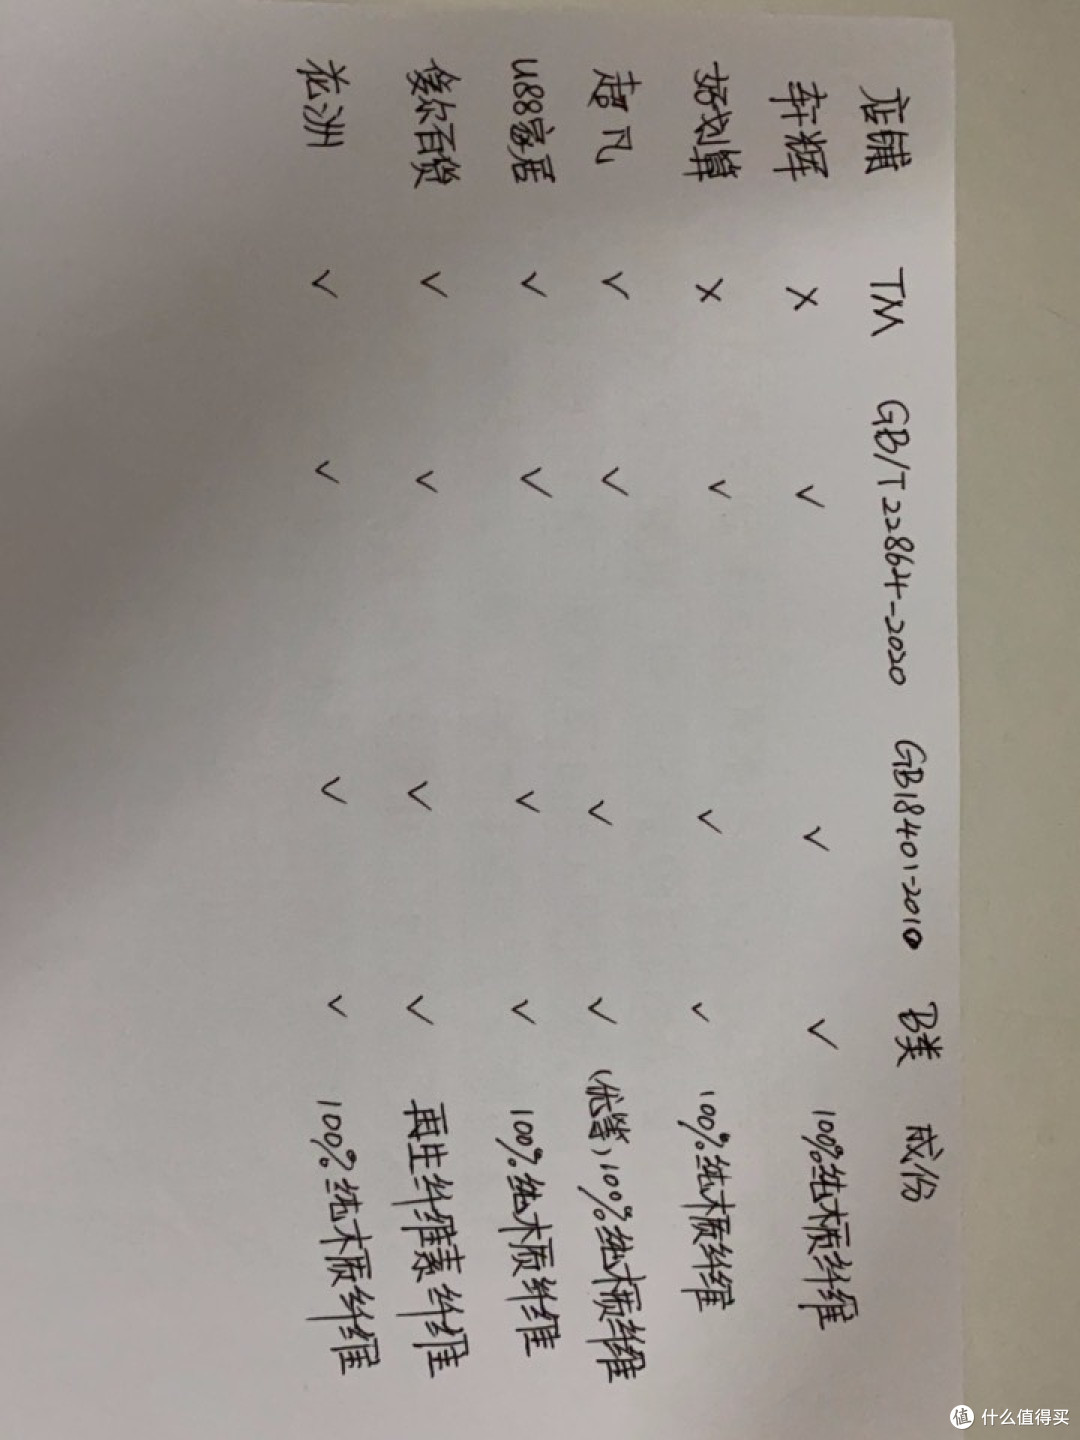 店铺 TM GB/T22864-2020 GB18401-2010 B类 成份
轩辉 × ✓ ✓ ✓ 100%纯木质纤维
好划算 × ✓ ✓ ✓ 100%纯木质纤维
超凡 ✓ ✓ ✓ ✓(优等)100%纯木质纤维
U88家居 ✓ ✓ ✓ ✓ 100%纯木质纤维
俊尔百货 ✓ ✓ ✓ ✓ 再生纤维素纤维
花洲 ✓ ✓ ✓ ✓ 100%纯木质纤维
值 什么值得买